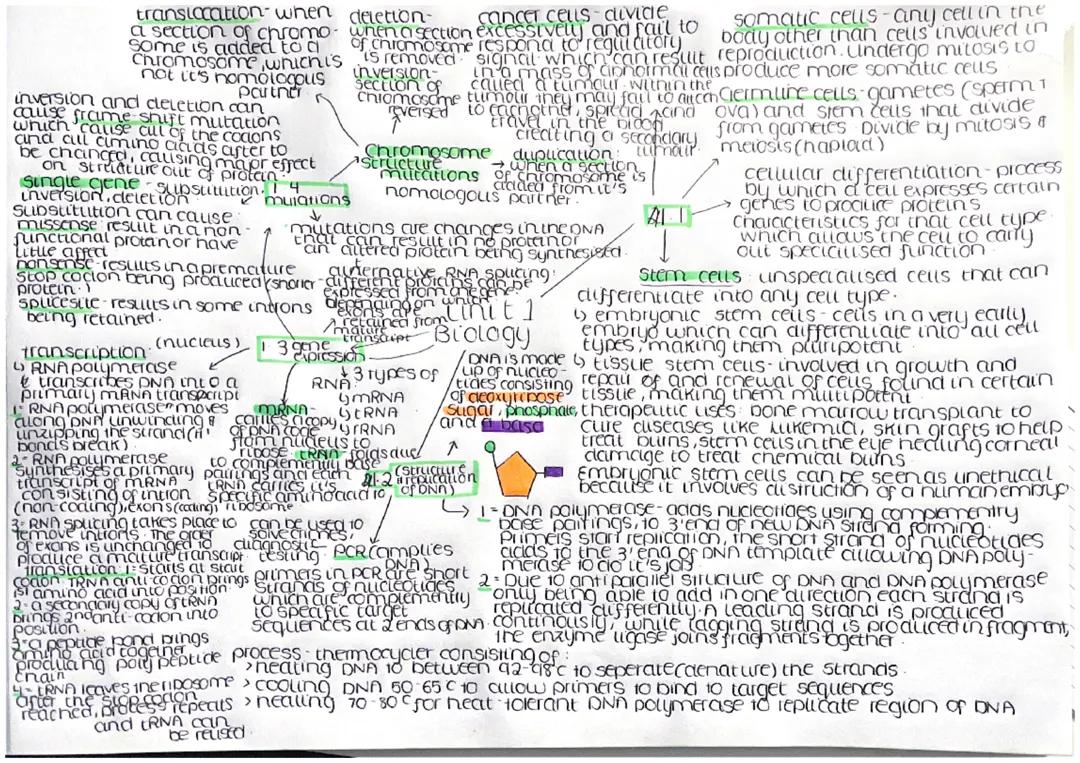 translocation- when
a section of chromo-
some is added to a
chromosome, which is
not it's homologous
partner
deletion-
when a section
of chromosome
is removed.
inversion-
section of
chromosome
reversed
cancer cells- divide
excessively and fail to
respond to regulatory
signal which can result
in a mass of abnormal cells
called a tumour. within the
tumour they may fail to attach
to eachother, spread and
travel in the blood
creating a secondary
tumour.
somatic cells - any cell in the
body other than cells involved in
reproduction. Undergo mitosis to
produce more somatic cells
Germline cells- gametes (sperm +
ova) and stem cells that divide
from gametes Divide by mitosis &
meiosis (haploid)
cellular differentiation- process
by which a cell expresses certain
genes to produce proteins
characteristics for that cell type.
which allows the cell to carry
out specialised function.
1.1
inversion and deletion can
cause frame shift mutation
which cause all of the codons
and all amino acids after to
be changed, causing major effect
on structure out of protein.
single gene - substitution.
inversion, deletion.
substitution can cause:
missense- result in a non-
functional protein or have
little affect
nonsense- results in a premature
stop codon being produced (shorter
protein.)
splicesite- results in some introns
being retained.
4
mutations
Chromosome
structure
mutations
duplication:
→ when a section
of chromosome is
added from it's
homologous partner.
mutations are changes in the DNA
that can result in no protein or
an altered protein being synthesised.
alternative RNA splicing:
different proteins can be
expressed from one gene
depending on which
exons are
retained from
mature
transcript
Unit 1
Biology
Stem cells : unspecialised cells that can
differentiate into any cell type.
↳ embryonic stem cells- cells in a very early
embryo which can differentiate into all cell
types, making them pluripotent.
↳ tissue stem cells- involved in growth and
repair of and renewal of cells, found in certain
tissue, making them multipotent
therapeutic uses: bone marrow transplant to
cure diseases like lukemia, skin grafts to help
treat burns, stem cells in the eye healing corneal
damage to treat chemical burns.
Embryonic stem cells can be seen as unethical
because it involves distruction of a human embryo
1 3 gene
expression
3 types of
RNA:
↳ mRNA
↳ tRNA
↳ rRNA
transcription (nucleus)
↳ RNA polymerase
& transcribes DNA into a
primary mRNA transcript
1- RNA polymerase moves
along DNA unwinding &
unzipping the strand (H
bonds break)
2- RNA polymerase
synthesises a primary
transcript of mRNA
consisting of intron
(non-coding), exons (coding)
3- RNA splicing takes place to
remove introns. the order
of exons is unchanged to
produce a mature transcript.
mRNA-
carries a copy
of DNA code
from nucleus to
ribosome
tRNA folds due
to complementary base
pairings and each
tRNA carries its
specific amino acid to
ribosome
DNA is made
up of nucleo-
tides consisting
of deoxyribose
sugar, phosphate,
and a base
1.2 structure
(replication
of DNA)
1- DNA polymerase- adds nucleotides using complementry
base pairings, to 3' end of new DNA strand forming.
Primers start replication, the short strand of nucleotides
adds to the 3' end of DNA template allowing DNA poly-
merase to do it's job.
2- Due to antiparallel structure of DNA and DNA polymerase
only being able to add in one direction each strand is
replicated differently. A leading strand is produced
continously, while lagging strand is produced in fragment,
the enzyme ligase joins fragments together.
can be used to
solve crimes,
diagnostic
testing
PCR (amplies
DNA)
primers in PCR are short
strands of nucleotides
which are complementy
to specific target
sequences at 2 ends of DNA.
translation 1- starts at start
codon. tRNA anti-codon brings
1st amino acid into position.
2- a secondary copy of tRNA
brings 2nd anti-codon into
position.
3- a peptide bond brings
amino acid together
producing polypeptide
chain
4- tRNA leaves the ribosome
after the stop codon
reached, process repeats
and tRNA can
be reused.
process - thermocycler consisting of:
> heating DNA to between 92-98°c to seperate (denature) the strands.
> cooling DNA 50-65°c to allow primers to bind to target sequences
> heating 70-80°c for heat-tolerant DNA polymerase to replicate region of DNA